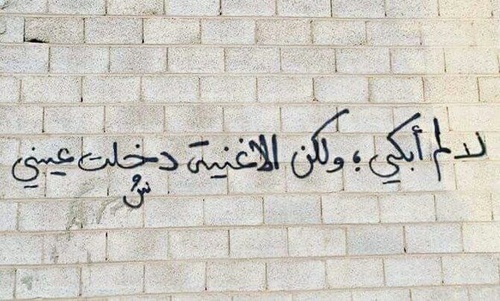 لا لم أبكي ، ولكن الاغنية دخلت عيني